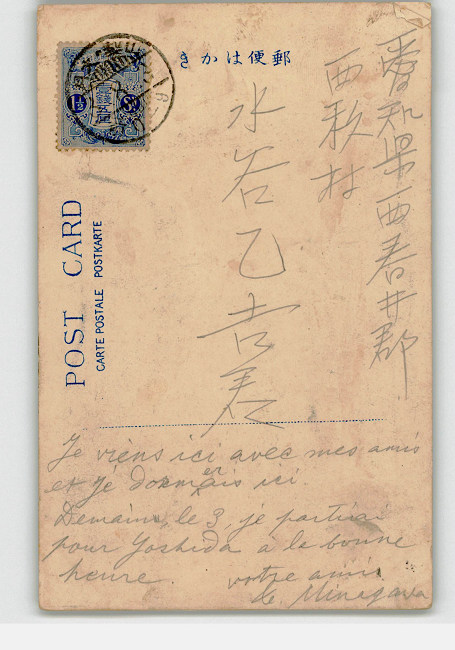 郵便はかき
愛知県西春井郡
西枇村
水谷乙吉君
1½ Sn
POST CARD
CARTE POSTALE POSTKARTE
Je viens ici avec mes amis
et je dormais ici.
Demain, le 3, je partirai
pour Yoshida à la bonne
heure. votre ami
Minagawa